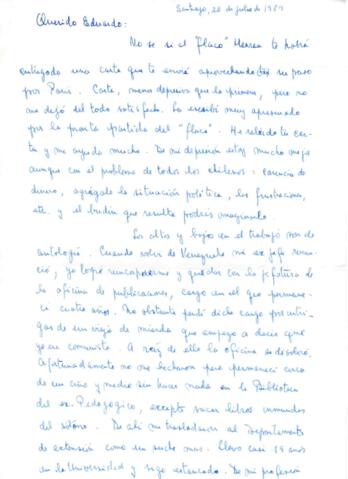 Santiago, 20 de julio de 1987
Querido Eduardo:
No se si el "flaco" Herrera te habrá
entregado una carta que te envié aprovechando su paso
por París. Carta, menos depresiva que la primera, pero no
me dejó del todo satisfecho. La escribí muy apresurado
por la pronta partida del "flaco". He releído tu car-
ta y me ayuda mucho. De mi depresión estoy mucho mejor
aunque con el problema de todos los chilenos: carencia de
dinero, agrégale la situación política, las frustraciones,
etc. y el budín que resulta podrás imaginarlo.
Los altos y bajos en el trabajo son de
antología. Cuando volví de Venezuela mi ex jefe renun-
ció, yo logré reincorporarme y quedar con la jefatura de
la oficina de publicaciones, cargo en el que permane-
cí cuatro años. No obstante perdí dicho cargo por intri-
gas de un viejo de mierda que empezó a decir que
yo era comunista. A raíz de ello la oficina se disolvió.
Afortunadamente no me echaron pero permanecí cerca
de un año y medio sin hacer nada en la Biblioteca
del ex-Pedagógico, excepto sacar libros inmundos
del sótano. De ahí me trasladaron al Departamento
de extensión como un mucho más. Llevo casi 14 años
en la Universidad y sigo estancado. De mi profesión